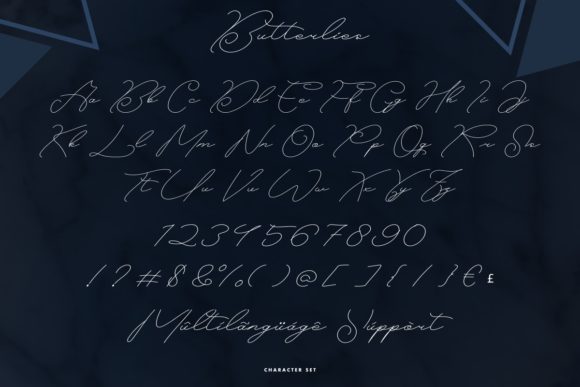 Butterlies
Aa Bb Cc Dd Ee Ff Gg Hh Ii Jj
Kk Ll Mm Nn Oo Pp Qq Rr Ss
Tt Uu Vv Ww Xx Yy Zz
1234567890
!?#$&%()@[]{/}€£
Mûltilãngüágê Súppòrt
CHARACTER SET